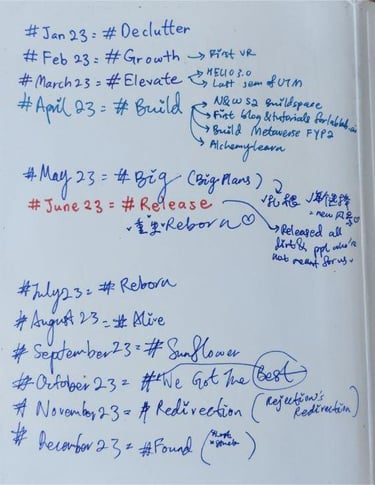 #Jan 23 = #Declutter
#Feb 23 = #Growth → First VR
#March 23 = #Elevate → HELIO 3.0
→ Last sem of UTM
#April 23 = #Build → N&W S2 Buildspace
→ First blog & tutorials for lablab.ai
→ Build Metaverse FYP2
→ Alchemy Learn
#May 23 = #Big (Big Plans)
#June 23 = #Release
重生 Reborn ♡
→ Released all
dirt & ppl who're
not meant for us
#July 23 = #Reborn
#August 23 = #Alive
#September 23 = #Sunflower
#October 23 = #We Got The Best
#November 23 = #Redirection (Rejection's
Redirection)
#December 23 = #Found